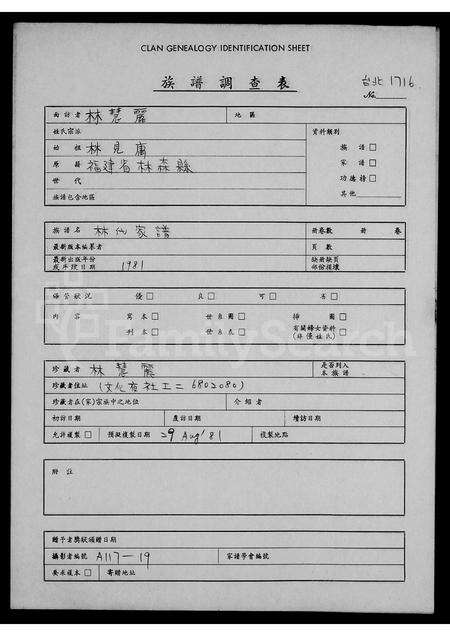 CLAN GENEALOGY IDENTIFICATION SHEET
族譜調查表
台北 1716
No.
面訪者 林慧麗 地區
姓氏宗派 資料類別
始祖 林見庸 族譜□
原籍 福建省林森縣 家譜□
世代 功德榜□
族譜包含地區 其他
族譜名 林仙家譜 冊卷數 冊 卷
最新版本編纂者 頁數
最新出版年份 缺冊缺頁
或手線日期 1981 部份損壞
保管狀況 優□ 良□ 可□ 劣□
內容 寫本□ 世系圖□ 禪圖□
刊本□ 世系表□ 有關婦女資料□
(非僅姓氏)
FamilySearch
珍藏者 林慧麗 是否列入
本族譜
珍藏者住址 6802080)
珍藏者在(家)宗族中之地位 介紹者
初訪日期 度訪日期 續訪日期
允許複製□ 預擬複製日期 29 Aug' 81 複製地點
附註
贈予者獎狀頒贈日期
攝影者編號 A117-19 家譜學會編號
要求複本□ 寄贈地址